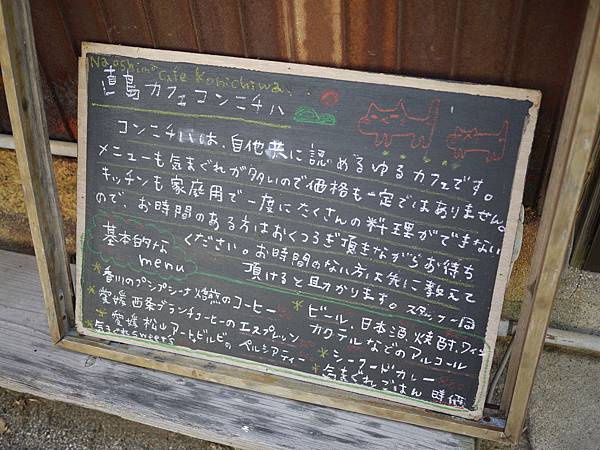 Naoshima Cafe Konichiwa.
直島カフェコンニチハ
コンニチハは、自他共に認めるゆるカフェです。
メニューも気まぐれが多いので価格も一定ではありません。
キッチンも家庭用で一度にたくさんの料理ができない
ので、お時間のある方はおくつろぎ頂きながらお待ち
ください。お時間のない方は先に教えて
頂けると助かります。スタッフ一同
基本的な
menu
*香川のプシプシーナ焙煎のコーヒー
*愛媛西条ブランチコーヒーのエスプレッソ
*愛媛松山アートビルヂの ペルシアティー
気まぐれsweets
*ビール、日本酒、焼酎、ワイン
カクテルなどのアルコール
*シーフードカレー
*気まぐれごはん 時価